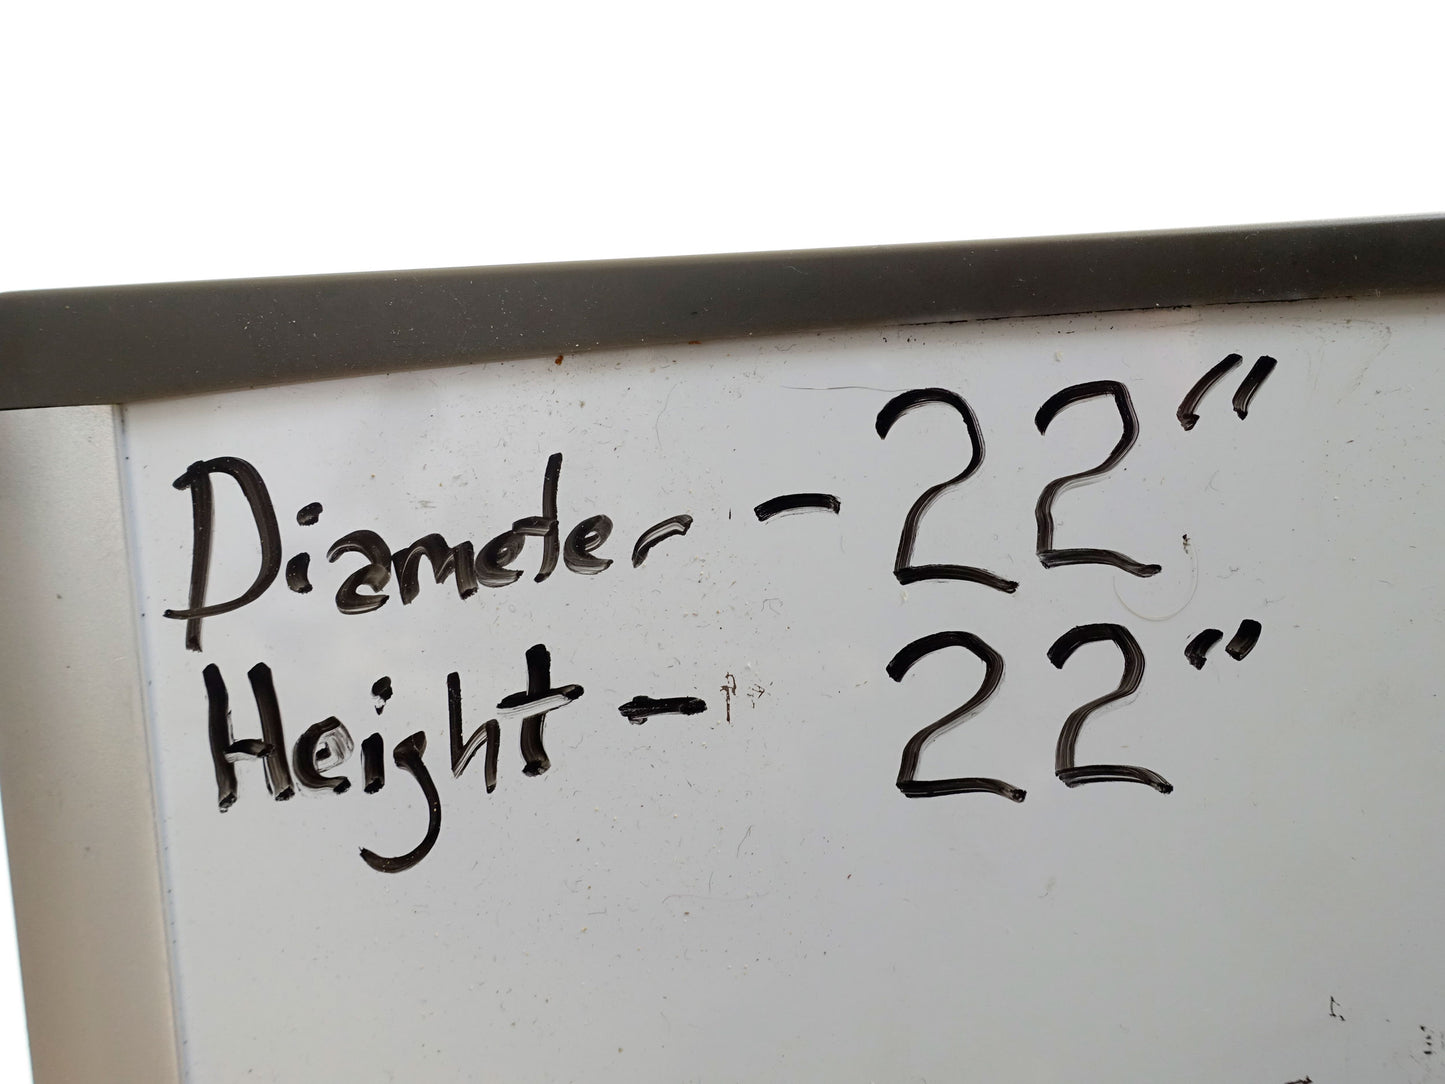 Diameter - 22"
Height - 22"